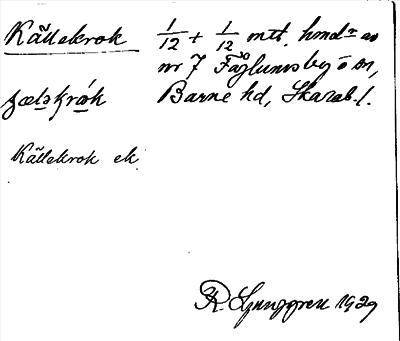 Källekrok 1/12 + 1/12 mtl. hmd
nr 7 Fåglum by o sn,
Barne hd, Skarab. l.
Källekrok ek
R. Ljunggren 1929